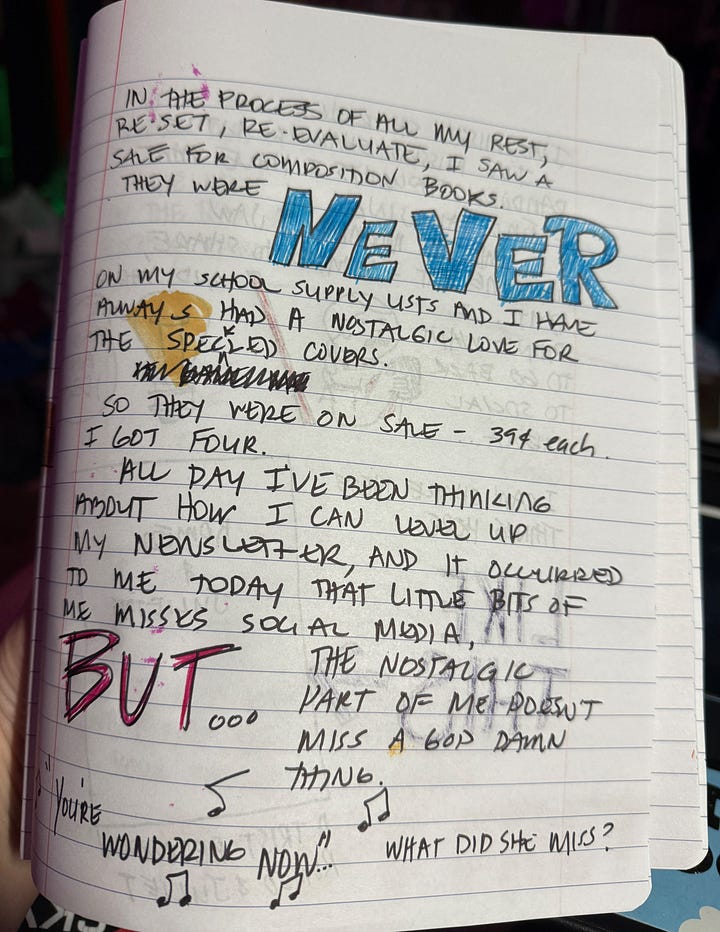 IN THE PROCESS OF ALL MY REST,
RE-SET, RE-EVALUATE, I SAW A
SALE FOR COMPOSITION BOOKS.
THEY WERE NEVER
ON MY SCHOOL SUPPLY LISTS AND I HAVE
ALWAYS HAD A NOSTALGIC LOVE FOR
THE SPECKLED COVERS.
SO THEY WERE ON SALE - 39¢ each.
I GOT FOUR.
ALL DAY I'VE BEEN THINKING
ABOUT HOW I CAN LEVEL UP
MY NEWSLETTER, AND IT OCCURRED
TO ME TODAY THAT LITTLE BITS OF
ME MISSES SOCIAL MEDIA,
BUT... THE NOSTALGIC
PART OF ME DOESN'T
MISS A GOD DAMN
THING.
"YOU'RE
WONDERING NOW..." WHAT DID SHE MISS?